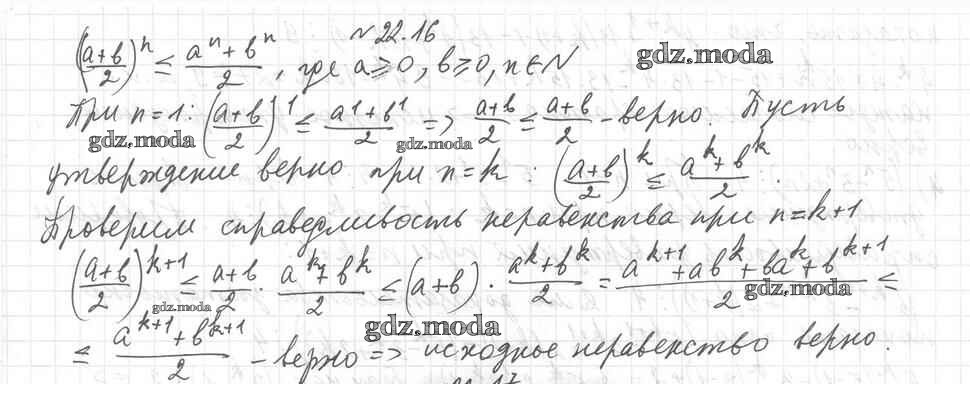 №22.16
((a+b)/2)^n ≤ (a^n+b^n)/2, где a≥0, b≥0, n∈N
gdz.moda
При n=1: ((a+b)/2)^1 ≤ (a^1+b^1)/2 => (a+b)/2 ≤ (a+b)/2 - верно. Пусть
gdz.moda
gdz.moda
утверждение верно при n=k: ((a+b)/2)^k ≤ (a^k+b^k)/2.
Проверим справедливость неравенства при n=k+1
((a+b)/2)^(k+1) ≤ (a+b)/2 · (a^k+b^k)/2 ≤ (a+b) · (a^k+b^k)/2 = (a^(k+1)+ab^k+ba^k+b^(k+1))/2 ≤
gdz.moda
gdz.moda
gdz.moda
≤ (a^(k+1)+b^(k+1))/2 - верно => исходное неравенство верно.